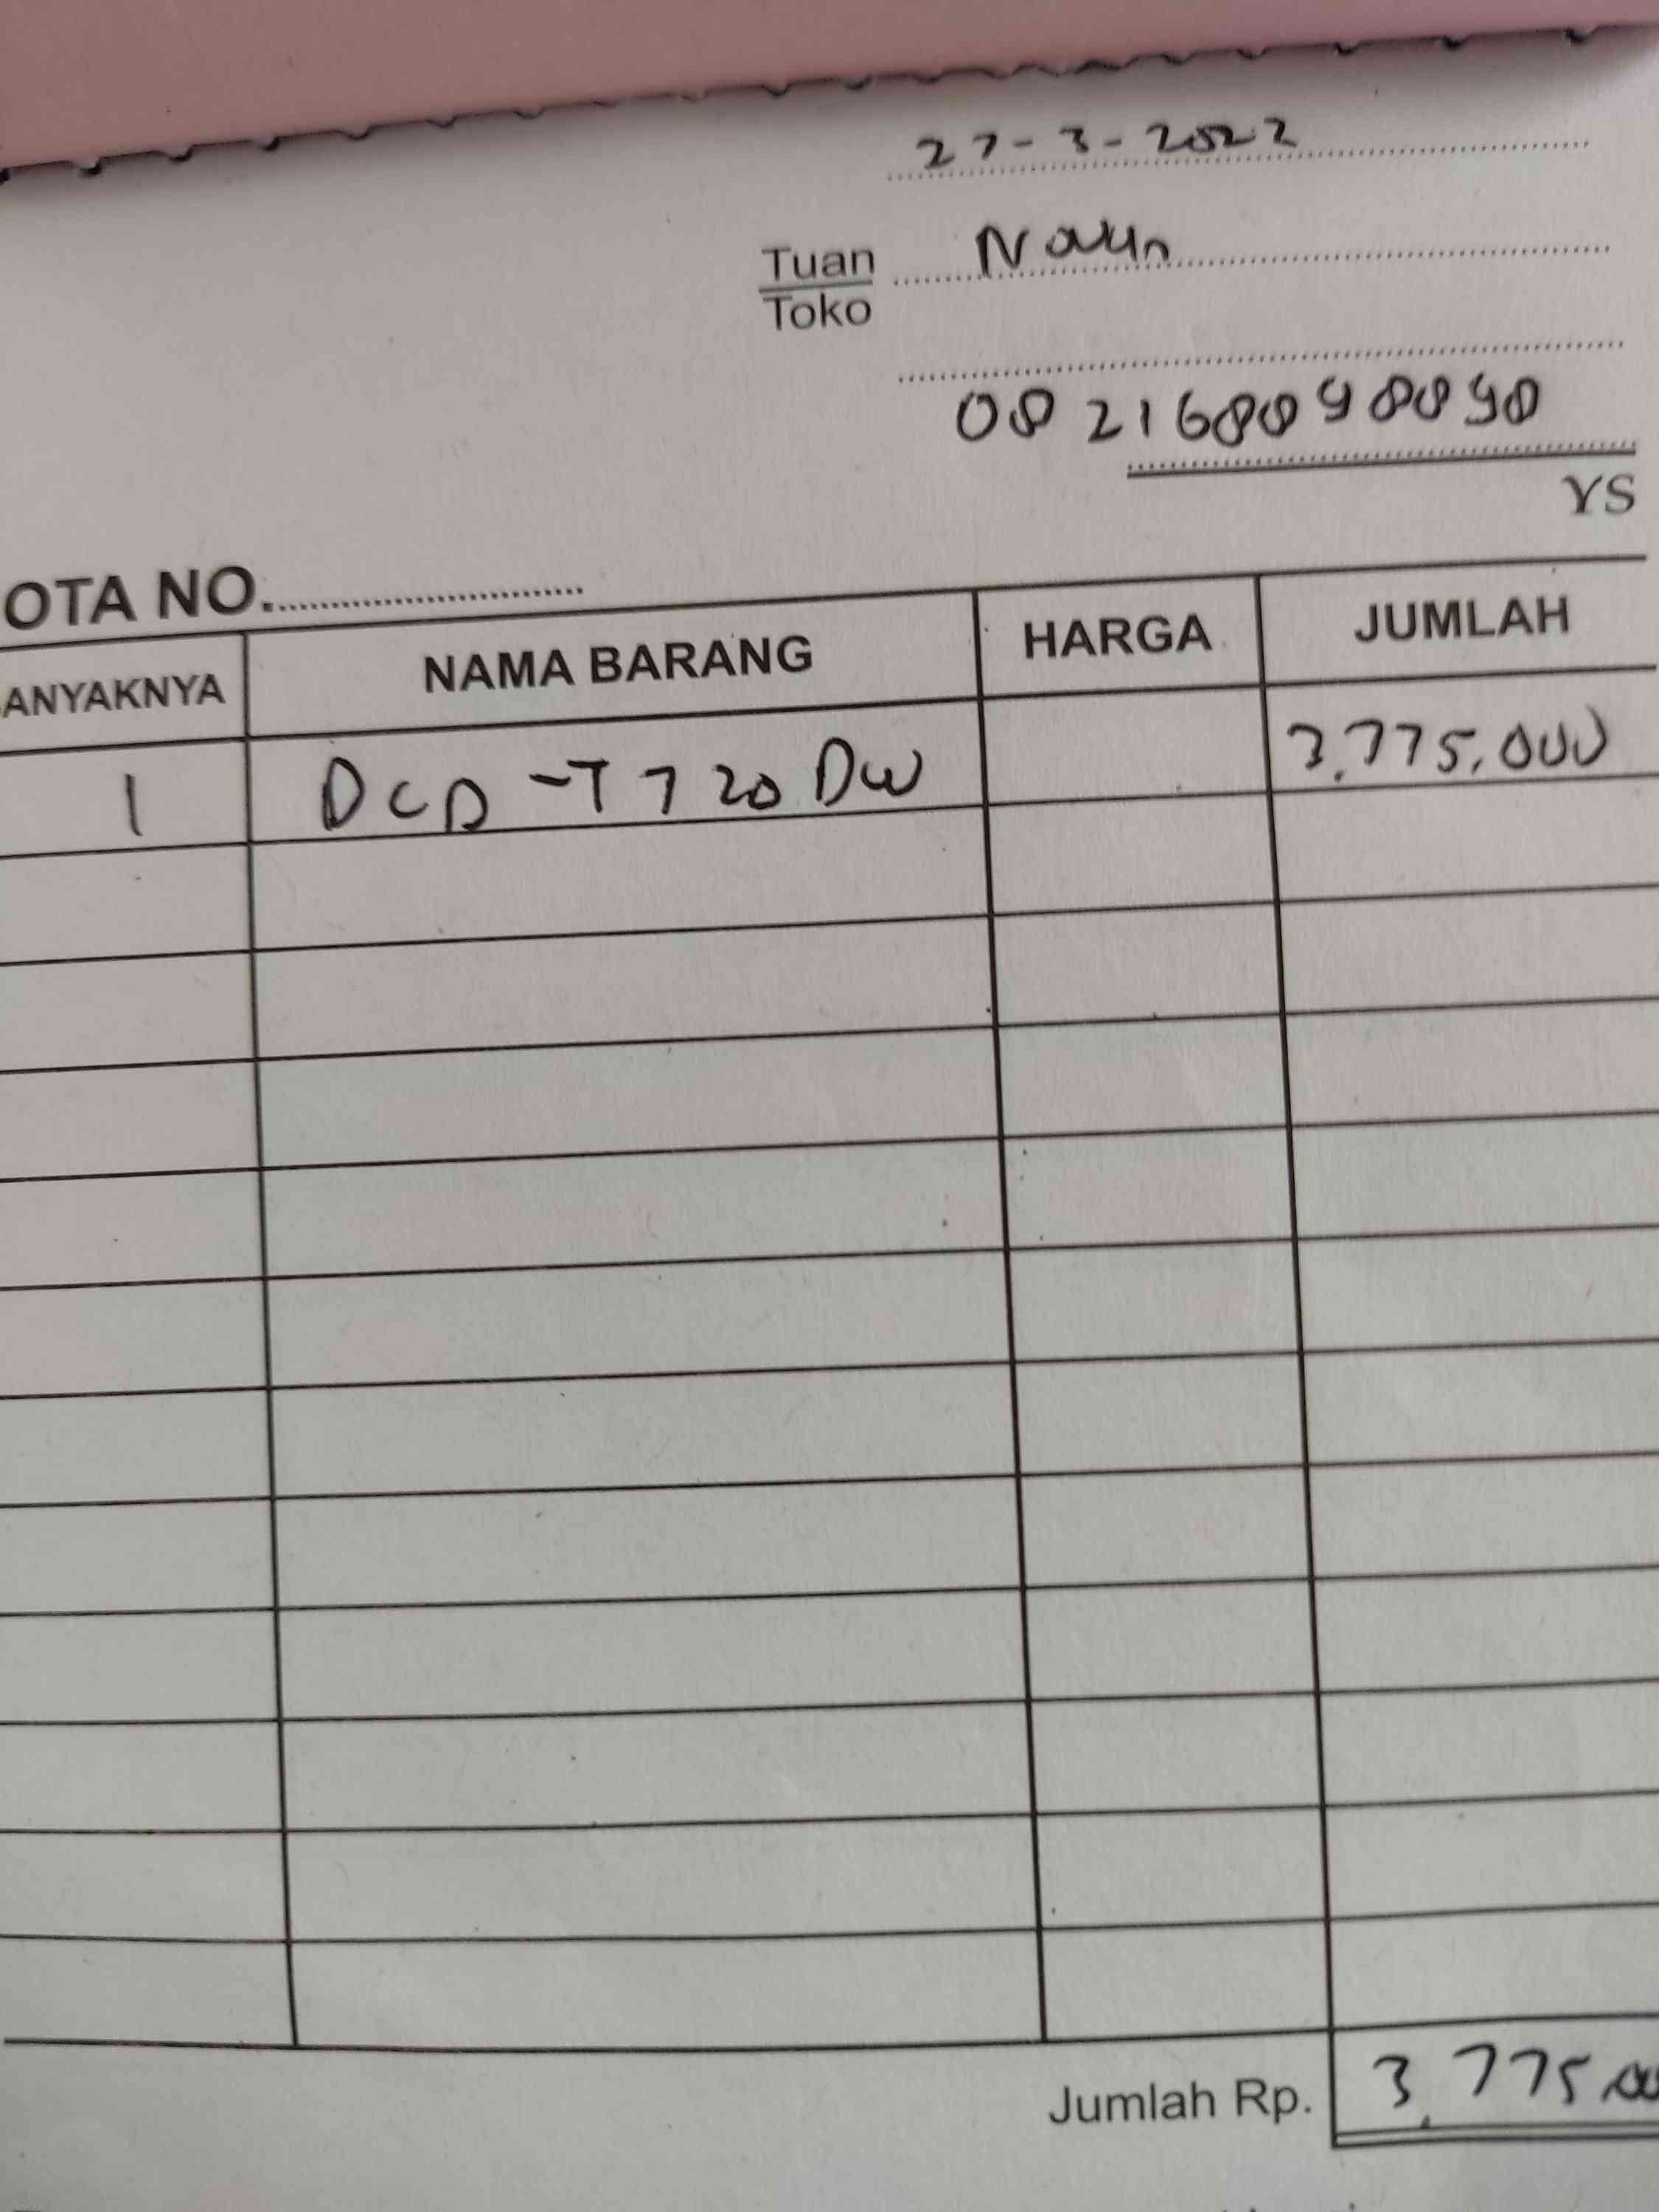 27-3-2022
Tuan
Toko
082168098090
YS
OTA NO.
ANYAKNYA NAMA BARANG HARGA JUMLAH
1 DCP-T720DW 3.775.000
Jumlah Rp. 3.775.00